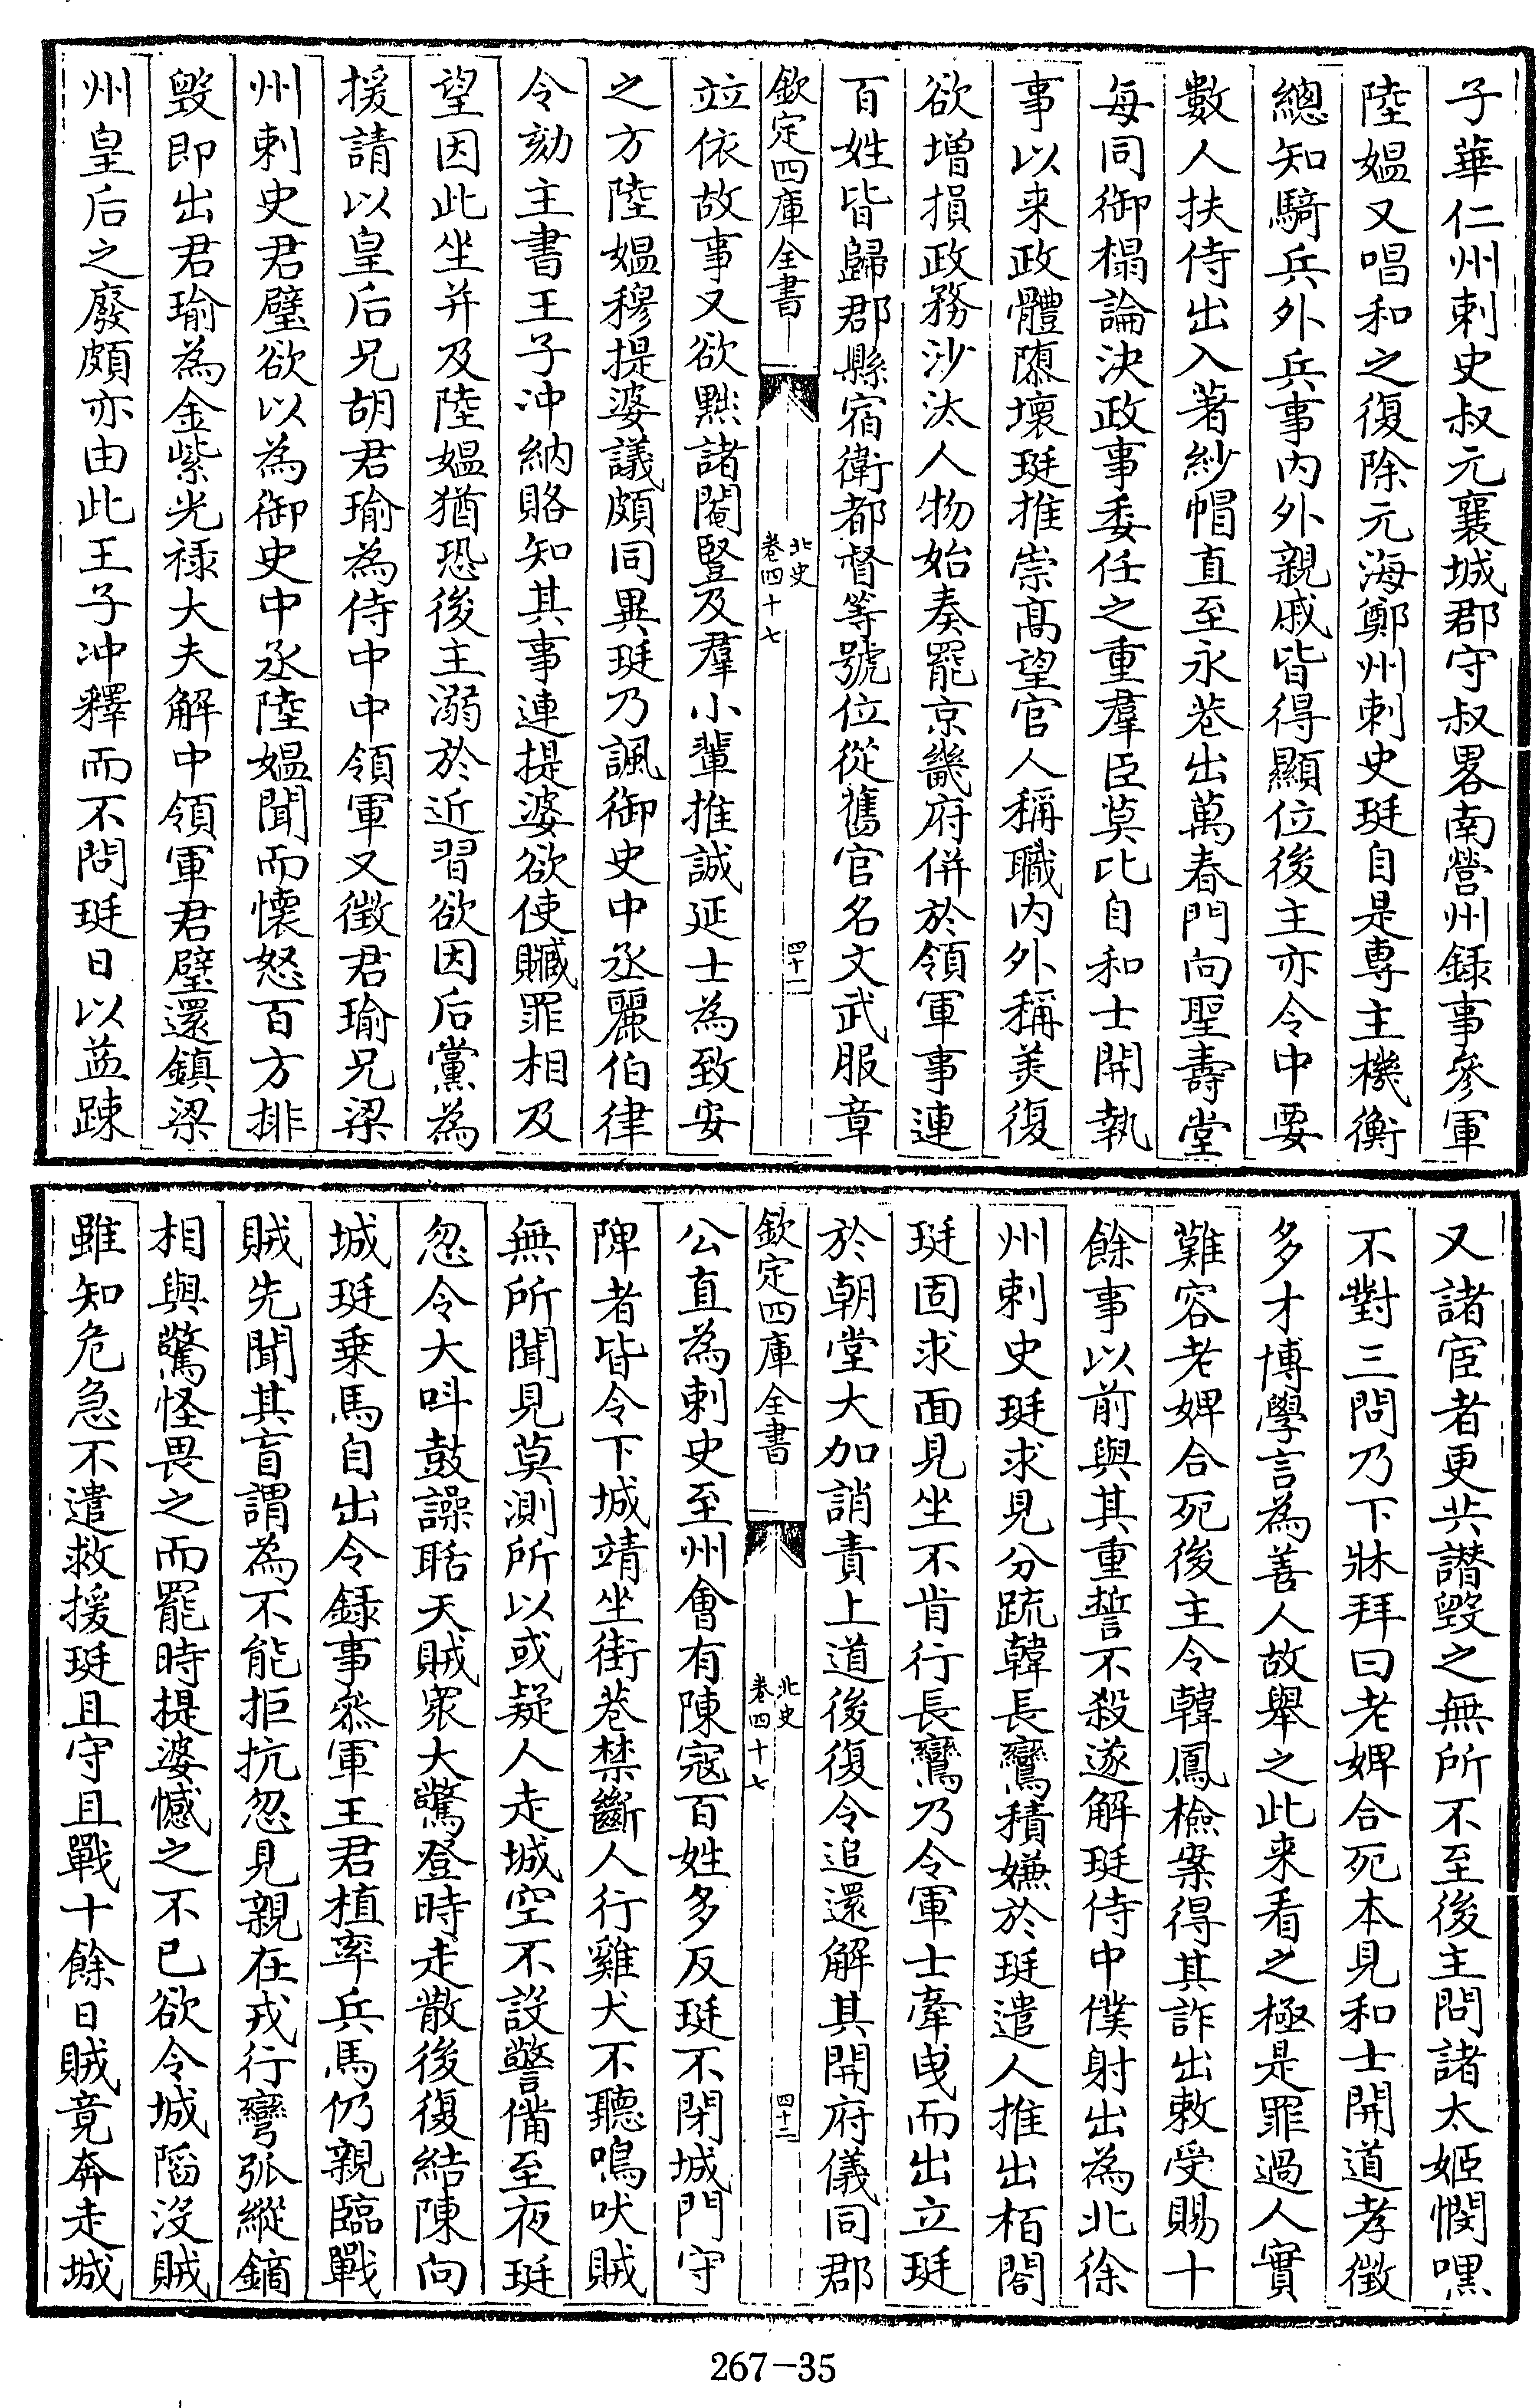 子華仁州刺史叔元襄城郡守叔畧南營州録事參軍
陸媼又唱和之復除元海鄭州刺史珽自是專主機衡
總知騎兵外兵事内外親戚皆得顯位後主亦令中要
數人扶侍出入著紗帽直至永巷出萬春門向聖壽堂
每同御榻論決政事委任之重羣臣莫比自和士開執
事以来政體隳壞珽推崇髙望官人稱職内外稱美復
欲增損政務沙汰人物始奏罷京畿府併於領軍事連
百姓皆歸郡縣宿衛都督等號位從舊官名文武服章
欽定四庫全書
北史
卷四十七
四十一
竝依故事又欲黜諸閹豎及羣小輩推誠延士為致安
之方陸媼穆提婆議頗同異珽乃諷御史中丞麗伯律
令劾主書王子冲納賂知其事連提婆欲使贓罪相及
望因此坐并及陸媼猶恐後主溺於近習欲因后黨為
援請以皇后兄胡君瑜為侍中中領軍又徴君瑜兄梁
州刺史君璧欲以為御史中丞陸媼聞而懷怒百方排
毀即出君瑜為金紫光禄大夫解中領軍君璧還鎮梁
州皇后之廢頗亦由此王子冲釋而不問珽日以益踈
又諸宦者更共譖毁之無所不至後主問諸太姬憫嘿
不對三問乃下牀拜曰老婢合死本見和士開道孝徴
多才博學言為善人故舉之此来看之極是罪過人實
難容老婢合死後主令韓鳳檢案得其詐出敕受賜十
餘事以前與其重誓不殺遂解珽侍中僕射出為北徐
州刺史珽求見分疏韓長鸞積嫌於珽遣人推出栢閤
珽固求面見坐不肯行長鸞乃令軍士牽曵而出立珽
於朝堂大加誚責上道後復令追還解其開府儀同郡
欽定四庫全書
北史
卷四十七
四十二
公直為刺史至州會有陳寇百姓多反珽不閉城門守
陴者皆令下城靖坐街巷禁斷人行雞犬不聽鳴吠賊
無所聞見莫測所以或疑人走城空不設警備至夜珽
忽令大呌鼓譟聒天賊衆大驚登時走散後復結陳向
城珽乗馬自出令録事叅軍王君植率兵馬仍親臨戰
賊先聞其盲謂為不能拒抗忽見親在戎行彎弧縱鏑
相與驚怪畏之而罷時提婆憾之不已欲令城陷没賊
雖知危急不遣救援珽且守且戰十餘日賊竟奔走城
267-35